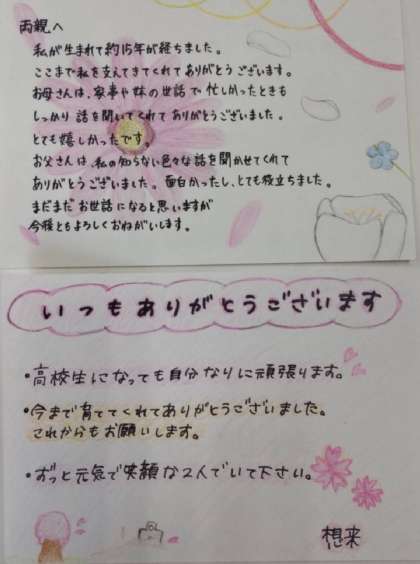 両親へ
私が生まれて約15年が経ちました。
ここまで私を支えてきてくれてありがとうございます。
お母さんは、家事や妹の世話で忙しかったときも
しっかり話を聞いてくれてありがとうございました。
とても嬉しかったです。
お父さんは、私の知らない色々な話を聞かせてくれて
ありがとうございました。面白かったし、とても役立ちました。
まだまだお世話になると思いますが
今後ともよろしくおねがいします。
いつもありがとうございます
・高校生になっても自分なりに頑張ります。
・今まで育ててくれてありがとうございました。
これからもお願いします。
・ずっと元気で笑顔な2人でいて下さい。
想来